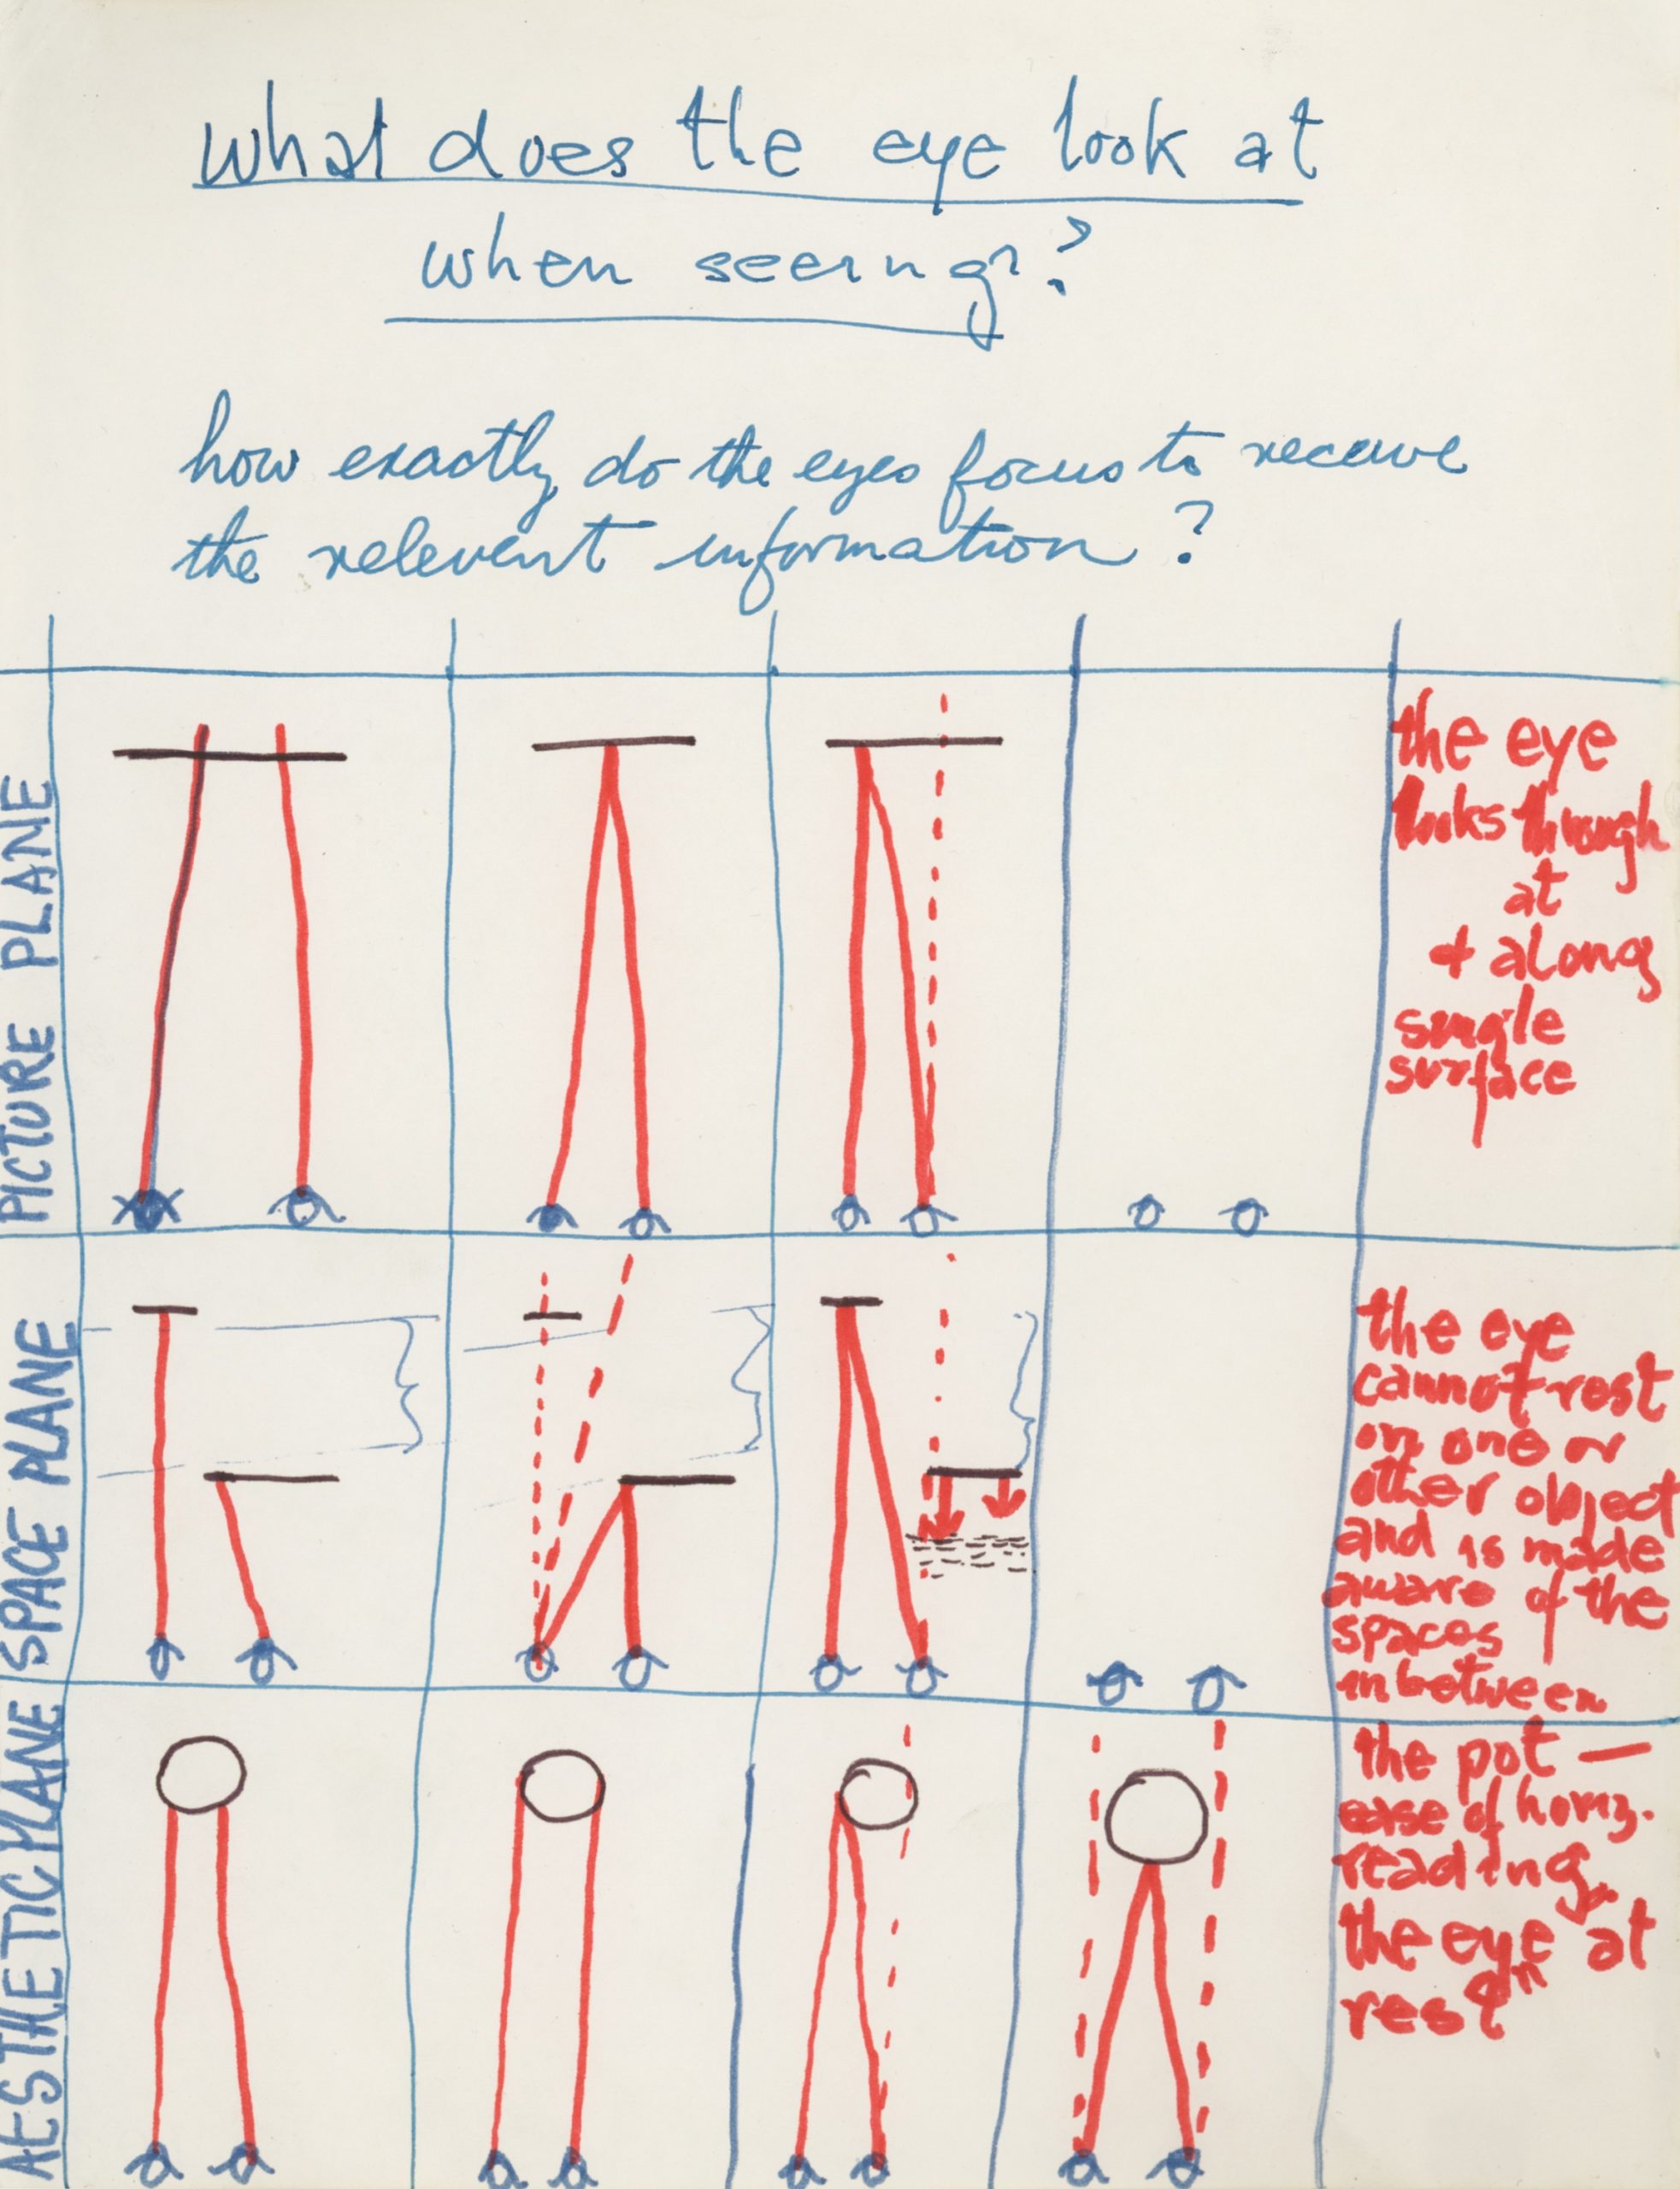 what does the eye look at
when seeing?
how exactly do the eyes focus to receive
the relevent information?
PICTURE PLANE
the eye
looks through
at
+ along
single
surface
SPACE PLANE
the eye
cannot rest
on one or
other object
and is made
aware of the
spaces
inbetween
AESTHETIC PLANE
the pot —
ease of horiz.
reading.
the eye "at
rest"